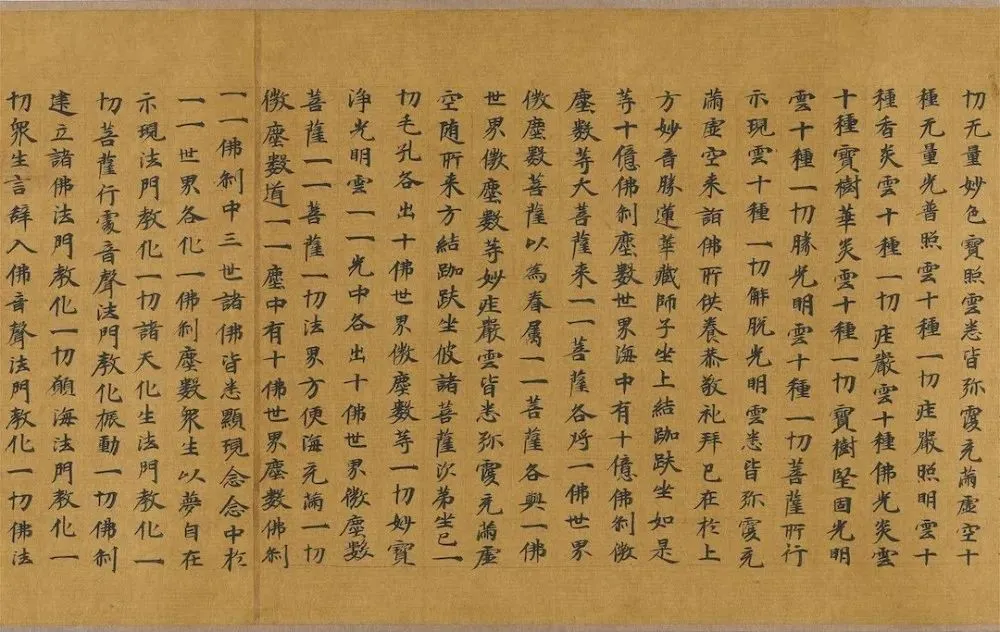 切无量妙色寶照雲悉皆弥覆充滿虛空十
種无量光普照雲十種一切庄嚴照明雲十
種香炎雲十種一切庄嚴雲十種佛光炎雲
十種寶樹華炎雲十種一切寶樹堅固光明
雲十種一切勝光明雲十種一切菩薩所行
示現雲十種一切解脫光明雲悉皆弥覆充
滿虛空来詣佛所供養恭敬礼拜已在於上
方妙音勝蓮華藏師子坐上結跏趺坐如是
等十億佛刹塵數世界海中有十億佛刹微
塵數等大菩薩来一一菩薩各将一佛世界
微塵數菩薩以為眷属一一菩薩各與一佛
世界微塵數等妙庄嚴雲皆悉弥覆充滿虛
空随所来方結跏趺坐彼諸菩薩次第坐已一
切毛孔各出十佛世界微塵數等一切妙寶
淨光明雲一一光中各出十佛世界微塵數
菩薩一一菩薩一切法界方便海充滿一切
微塵數道一一塵中有十佛世界塵數佛刹
一一佛刹中三世諸佛皆悉顯現念念中於
一一世界各化一佛刹塵數衆生以夢自在
示現法門教化一切諸天化生法門教化一
切菩薩行處音聲法門教化振動一切佛刹
建立諸佛法門教化一切願海法門教化一
切衆生言辭入佛音聲法門教化一切佛法